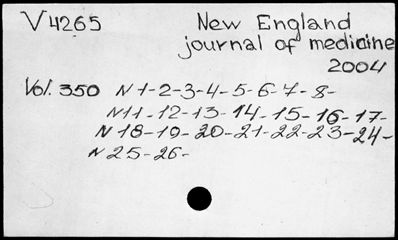 V4265 New England
journal of medicine
2004
Vol. 350 N 1-2-3-4-5-6-7-8-
N11-12-13-14-15-16-17-
N 18-19-20-21-22-23-24-
N 25-26-